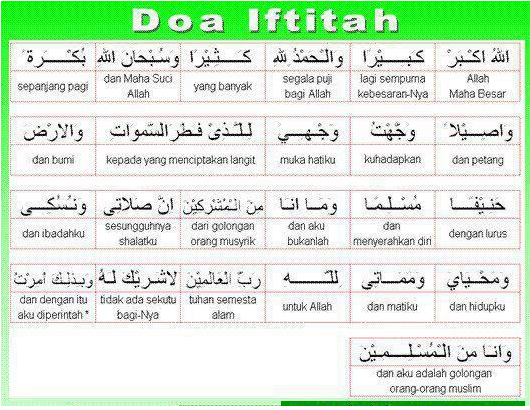 Doa Iftitah
اللهُ اَكْبَرْ كَبِيْرًا وَالْحَمْدُ لِلهِ كَثِيْرًا وَسُبْحَانَ اللهِ بُكْرَةً
Allah Maha Besar lagi sempurna kebesaran-Nya segala puji bagi Allah yang banyak dan Maha Suci Allah sepanjang pagi
وَاَصِيْلًا وَجَّهْتُ وَجْهِيَ لِلَّذِيْ فَطَرَ السَّمَوَاتِ وَالْاَرْضَ
dan petang kuhadapkan muka hatiku kepada yang menciptakan langit dan bumi
حَنِيْفًا مُسْلِمًا وَمَا اَنَا مِنَ الْمُشْرِكِيْنَ اِنَّ صَلَاتِى وَنُسُكِى
dengan lurus dan menyerahkan diri dan aku bukanlah dari golongan orang musyrik sesungguhnya shalatku dan ibadahku
وَمَحْيَاي وَمَمَاتِى لِلّٰهِ رَبِّ الْعَالَمِيْنَ لَاشَرِيْكَ لَهُ وَبِذٰلِكَ اُمِرْتُ
dan hidupku dan matiku untuk Allah tuhan semesta alam tidak ada sekutu bagi-Nya dan dengan itu aku diperintah *
وَاَنَا مِنَ الْمُسْلِمِيْنَ
dan aku adalah golongan orang-orang muslim